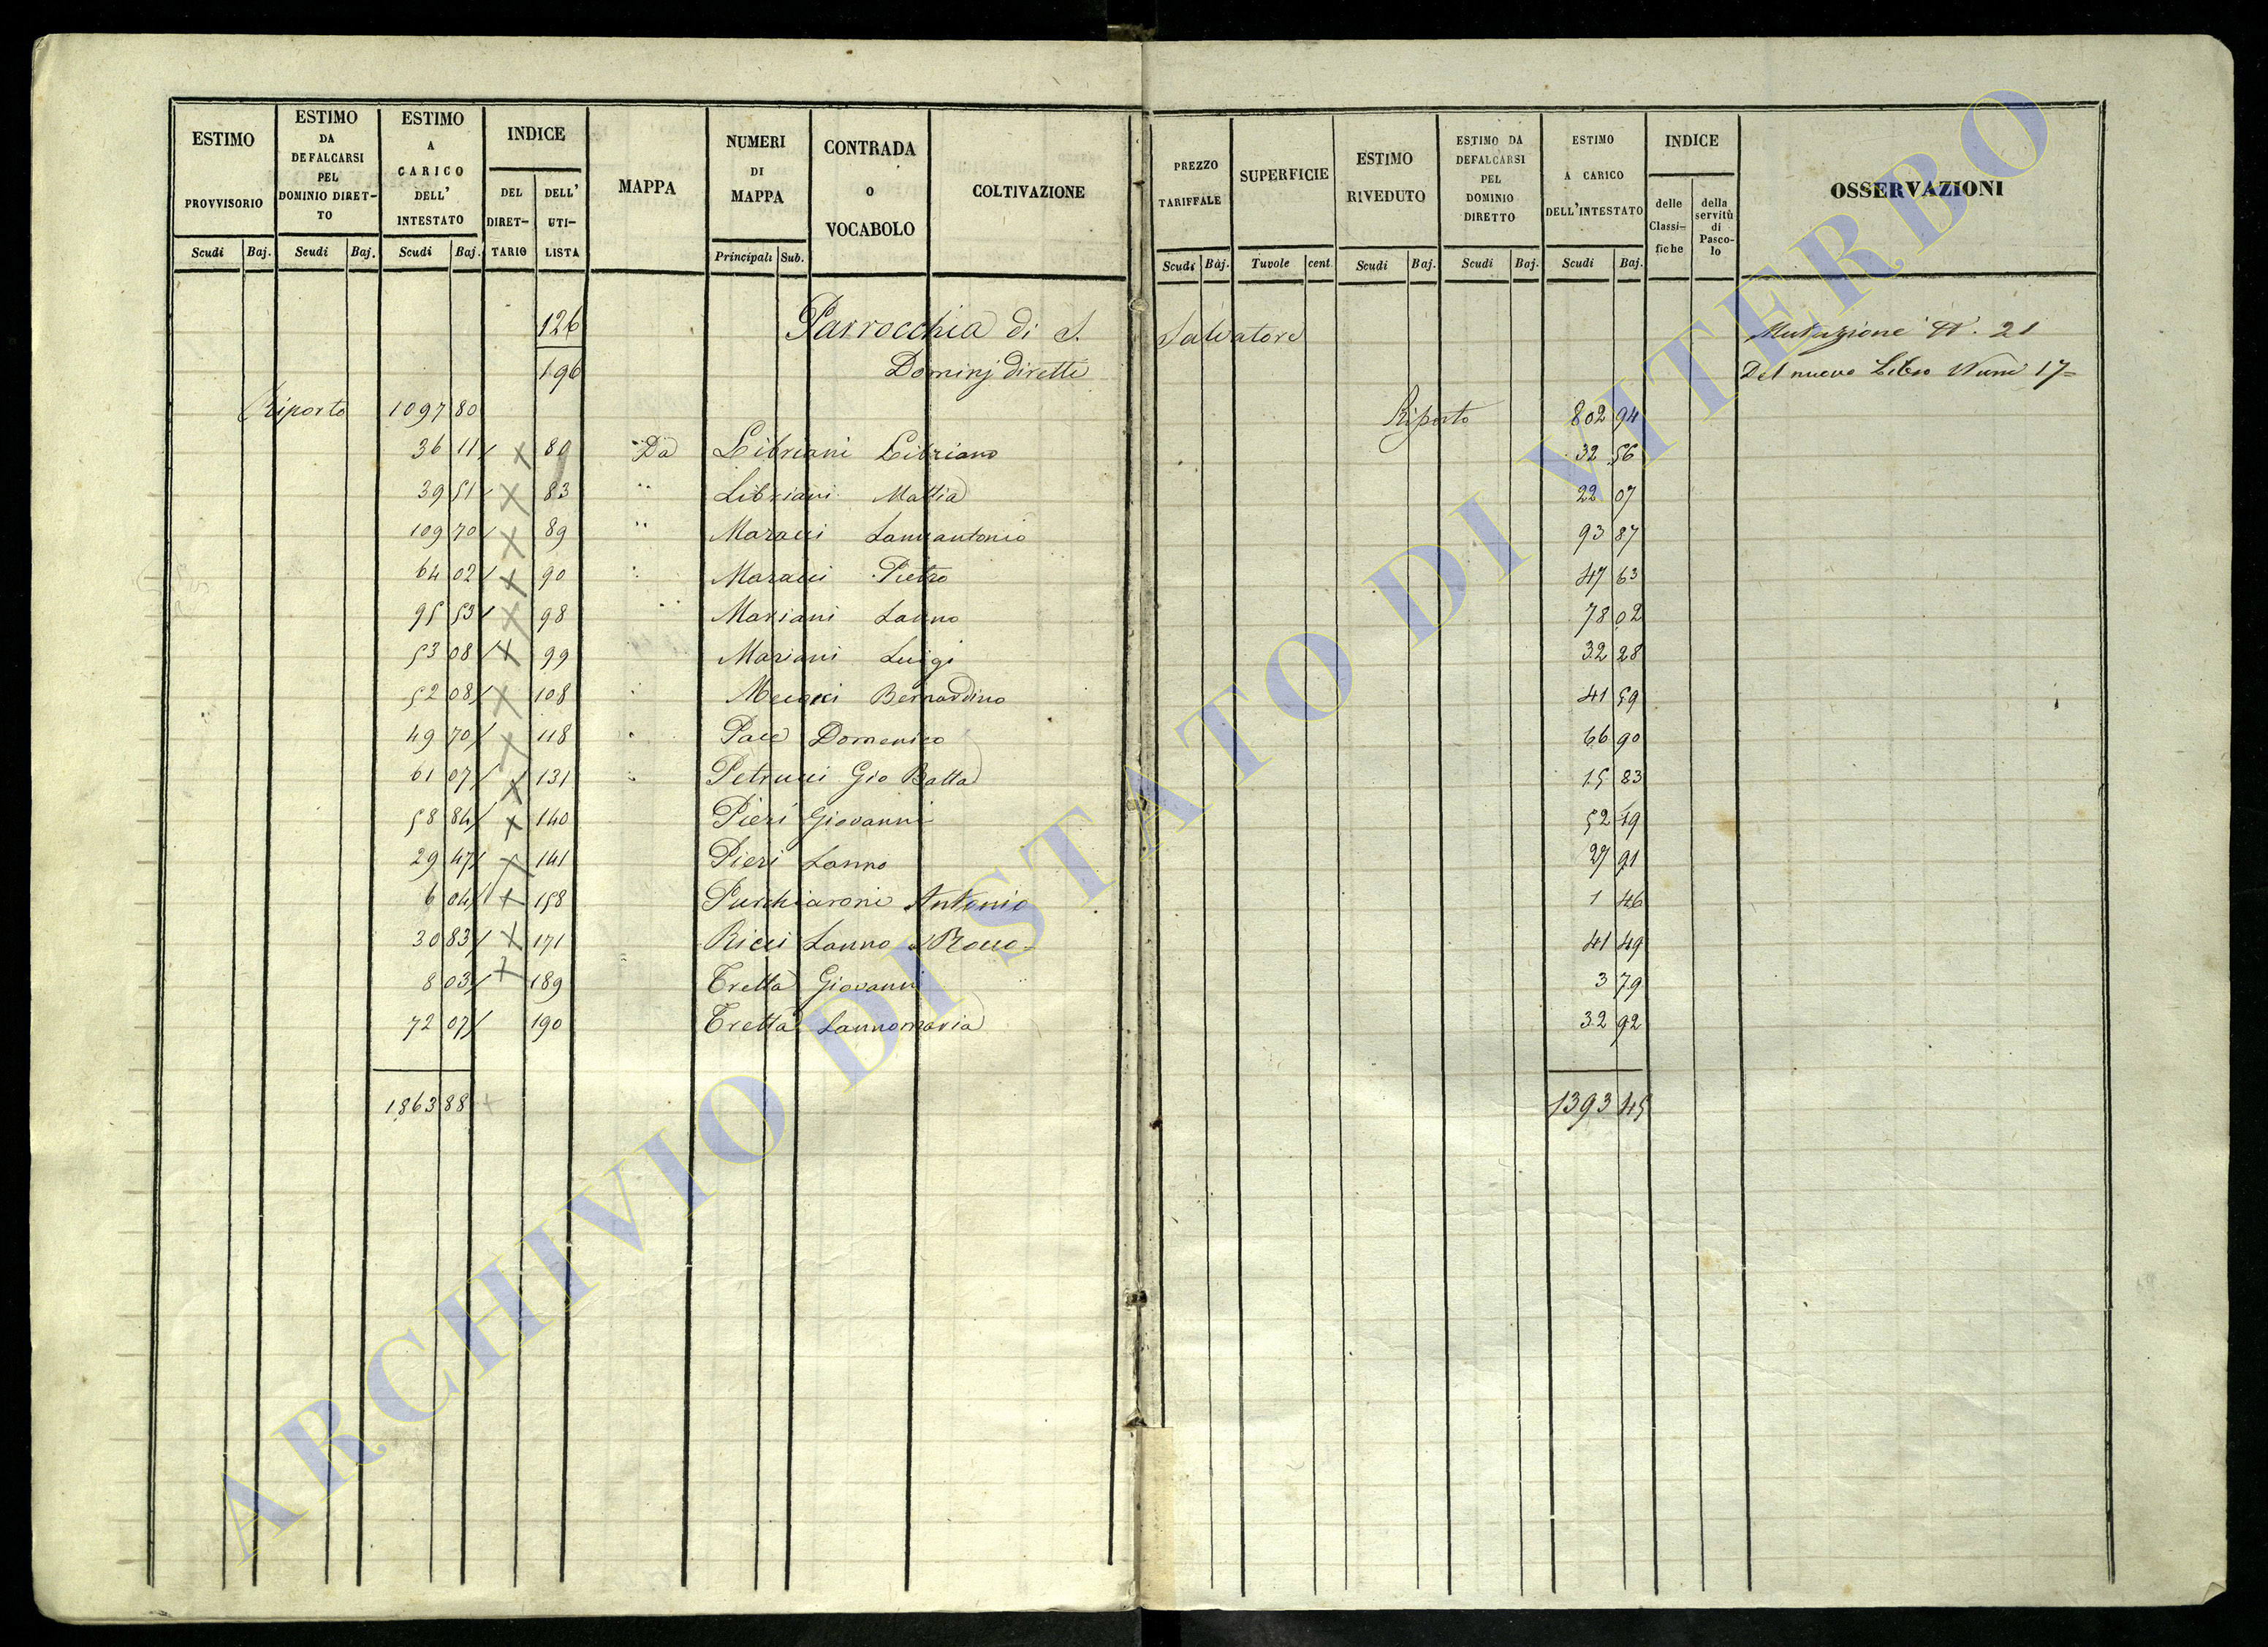 ESTIMO PROVVISORIO
ESTIMO DA DEFALCARSI PEL DOMINIO DIRETTO
ESTIMO A CARICO DELL' INTESTATO
INDICE
DEL DIRETTARIO
DELL' UTILISTA
MAPPA
NUMERI DI MAPPA
CONTRADA O VOCABOLO
COLTIVAZIONE
PREZZO TARIFFALE
SUPERFICIE
ESTIMO RIVEDUTO
ESTIMO DA DEFALCARSI PEL DOMINIO DIRETTO
ESTIMO A CARICO DELL'INTESTATO
INDICE
delle Classifiche
della servitù di Pascolo
OSSERVAZIONI
Scudi Baj. Scudi Baj. Scudi Baj. Principali Sub. Scudi Baj. Tuvole cent Scudi Baj. Scudi Baj. Scudi Baj.
126 Parrocchia di S. Salvatore Mutazione N. 21
196 Dominj diretti Del nuovo Libro Num 17=
Riporto 1097 80 Riporto 802 94
36 11 / 80 Da Libriani Libriano 32 56
39 51 / 83 " Libriani Mattia 22 07
109 70 / 89 " Maracci Sanuantonio 93 87
64 02 / 90 " Maracci Pietro 47 63
95 53 / 98 " Mariani Sanno 78 02
53 08 / 99 " Mariani Luigi 32 28
52 08 / 108 " Bernardino 41 59
49 70 / 118 " Pace Domenico 66 90
61 07 / 131 " Petrucci Gio Batta 15 83
58 84 / 140 Pieri Giovanni 52 19
29 47 / 141 Pieri Sanno 27 91
6 04 / 158 Purchiaroni Antonio 1 46
30 83 / 171 = Ricci Sanno e Rocco= 41 49
8 03 / 189 Tretta Giovanni 3 79
72 07 / 190 Tretta Sannomaria 32 92
1863 88 1393 45
ARCHIVIO DI STATO DI VITERBO